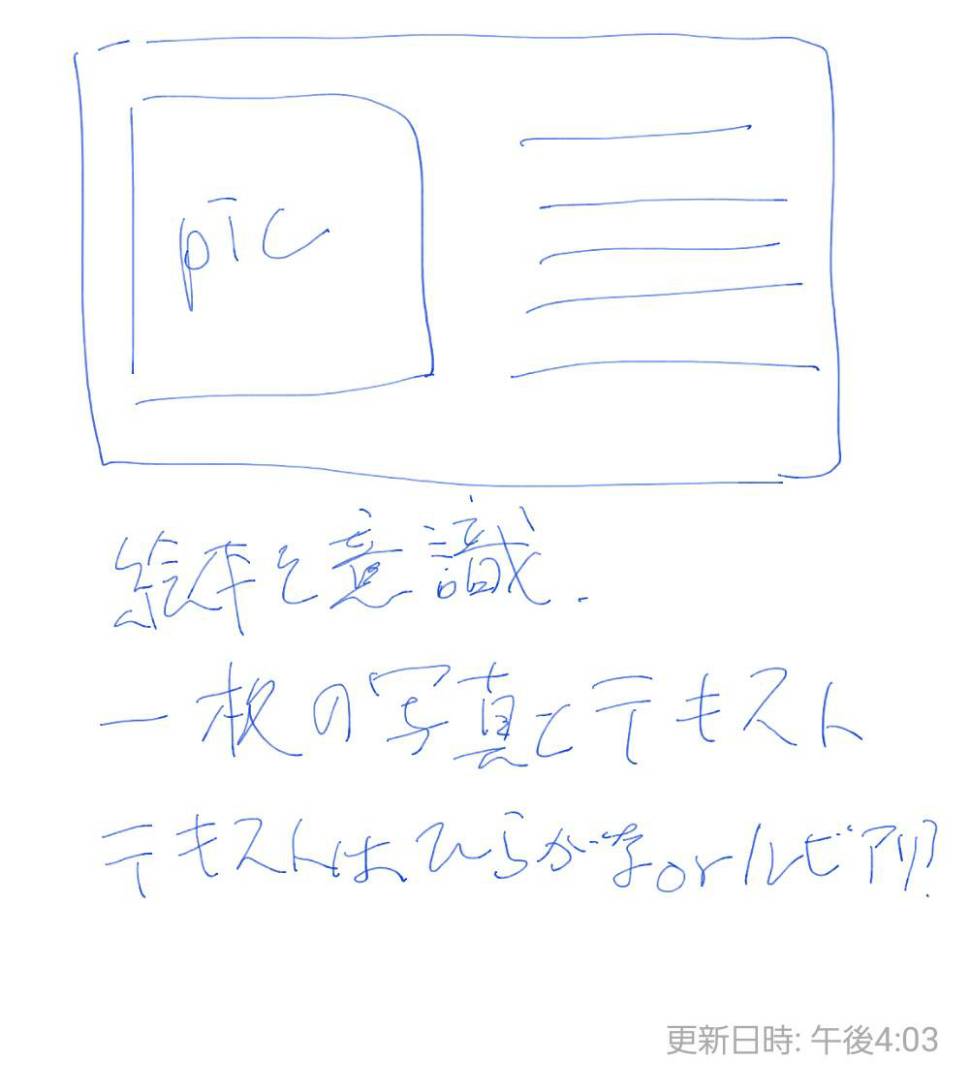 pic
絵本を意識.
一枚の写真とテキスト
テキストはひらがなorルビアリ?
更新日時: 午後4:03